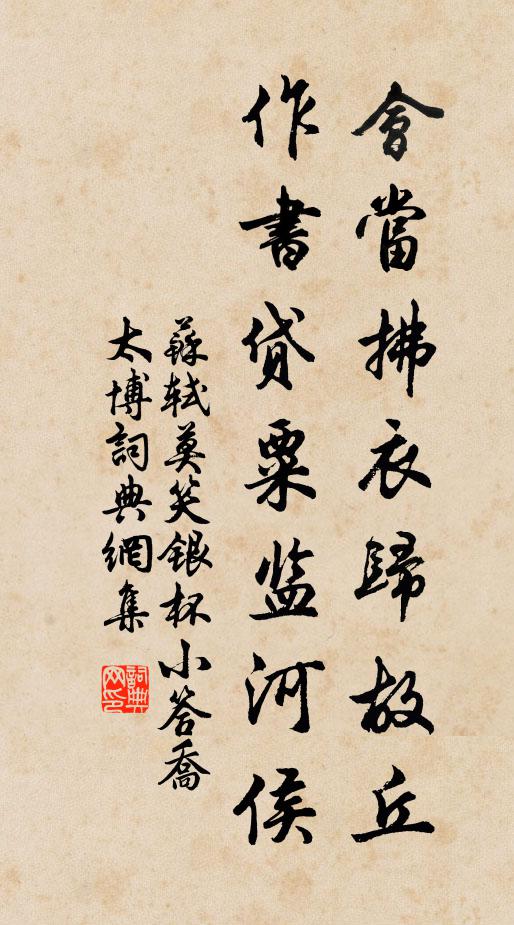 會當拂衣歸故丘
作書貸粟監河侯
蘇軾莫笑銀杯小答喬
太博詞典網集
詞典
网印